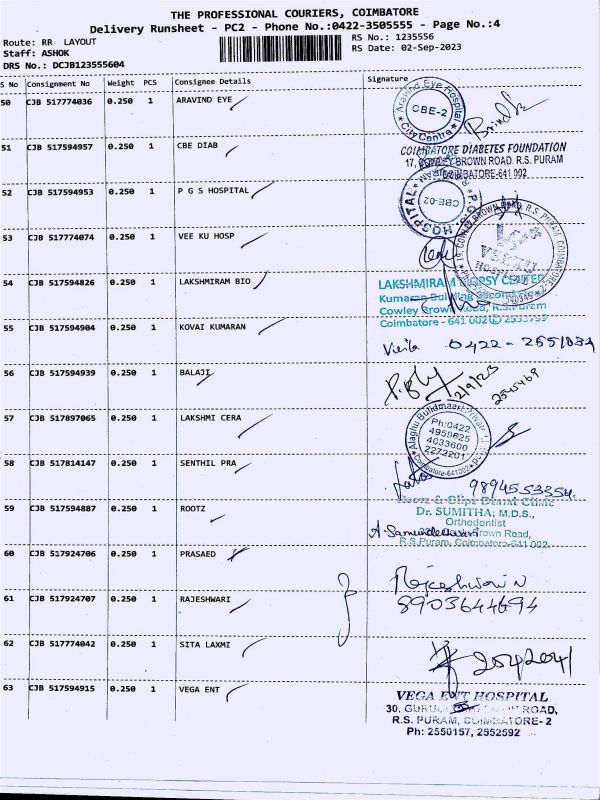 THE PROFESSIONAL COURIERS, COIMBATORE
Delivery Runsheet - PC2 - Phone No.:0422-3505555 - Page No.:4
Route: RR LAYOUT
RS No.: 1235556
Staff: ASHOK
RS Date: 02-Sep-2023
DRS No.: DCJB123555604
S No Consignment No Weight PCS Consignee Details Signature
50 CJB 517774036 0.250 1 ARAVIND EYE
Aravind Eye Hospital
CBE-2
City Centre
51 CJB 517594957 0.250 1 CBE DIAB
COIMBATORE DIABETES FOUNDATION
17, COWLEY BROWN ROAD. R.S. PURAM
COIMBATORE-641 002
52 CJB 517594953 0.250 1 P G S HOSPITAL
P.G. HOSPITAL
CBE-02
53 CJB 517774074 0.250 1 VEE KU HOSP
COWLEY BROWN ROAD, R.S. PURAM, COIMBATORE-2
54 CJB 517594826 0.250 1 LAKSHMIRAM BIO
LAKSHMIRAM BIOPSY CENTER
Kumaran Building Second
Cowley Brown Road, R.S.Puram
Coimbatore - 641 002
55 CJB 517594904 0.250 1 KOVAI KUMARAN
0422-2551034
56 CJB 517594939 0.250 1 BALAJI
2/9/23
2545469
57 CJB 517897065 0.250 1 LAKSHMI CERA
Ph:0422
4959625
4033600
2272201
Coimbatore-641002
58 CJB 517814147 0.250 1 SENTHIL PRA
9894553354
59 CJB 517594887 0.250 1 ROOTZ
Dental Clinic
Dr. SUMITHA; M.D.S.,
Orthodontist
Brown Road,
R.S.Puram, Coimbatore-641 002
60 CJB 517924706 0.250 1 PRASAED
61 CJB 517924707 0.250 1 RAJESHWARI
Rajeshwari N
8903644694
62 CJB 517774042 0.250 1 SITA LAXMI
2542041
63 CJB 517594915 0.250 1 VEGA ENT
VEGA ENT HOSPITAL
30, ROAD,
R.S. PURAM, COIMBATORE- 2
Ph: 2550157, 2552592